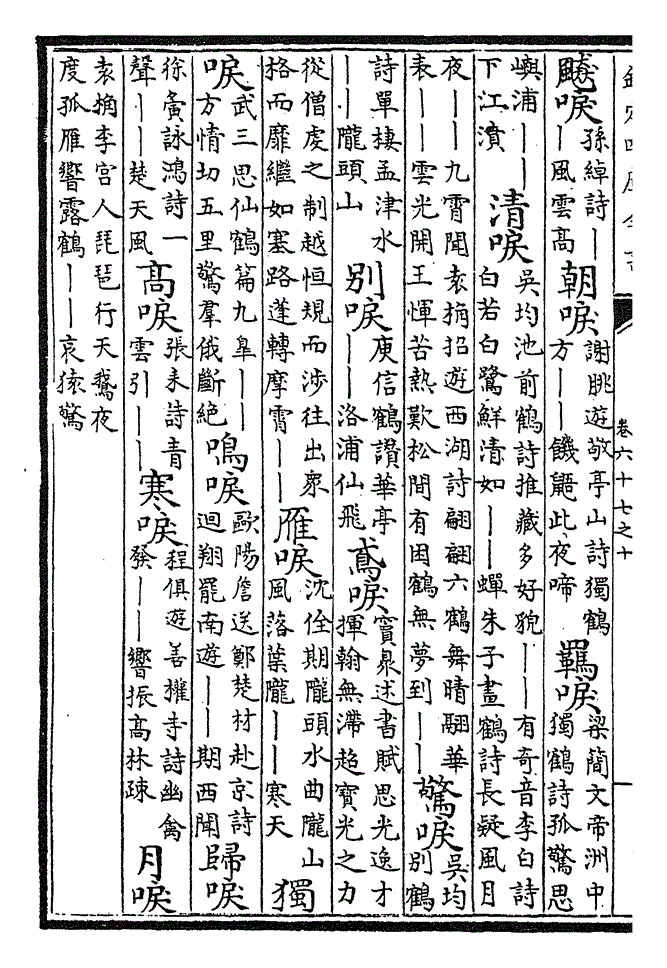 欽定四庫全書
卷六十七之十
飈唳孫綽詩——風雲高朝唳謝眺遊敬亭山詩獨鶴方——饑鼯此夜啼羈唳梁簡文帝洲中獨鶴詩孤驚思
嶼浦——下江濆清唳吳均池前鶴詩推藏多好貌——有奇音李白詩白若白鷺鮮清如——蟬朱子畫鶴詩長疑風月
夜——九霄聞袁桷招遊西湖詩翩翩六鶴舞晴翮華表——雲光開王惲苦熱歎松間有困鶴無夢到——驚唳吳均別鶴
詩單棲孟津水——隴頭山別唳庾信鶴讚華亭——洛浦仙飛鳶唳竇臮述書賦思光逸才揮翰無滯超寶光之力
從僧虔之制越恒規而涉往出衆格而靡繼如塞路蓬轉摩霄——雁唳沈佺期隴頭水曲隴山風落葉隴——寒天獨
唳武三思仙鶴篇九皐——方情切五里驚羣俄斷絶鳴唳歐陽詹送鄭楚材赴京詩迴翔罷南遊——期西聞歸唳
徐夤詠鴻詩一聲——楚天風高唳張耒詩青雲引——寒唳程俱遊善權寺詩幽禽發——響振高林疎月唳
袁桷李宮人琵琶行天鵞夜度孤雁響露鶴——哀猿驚